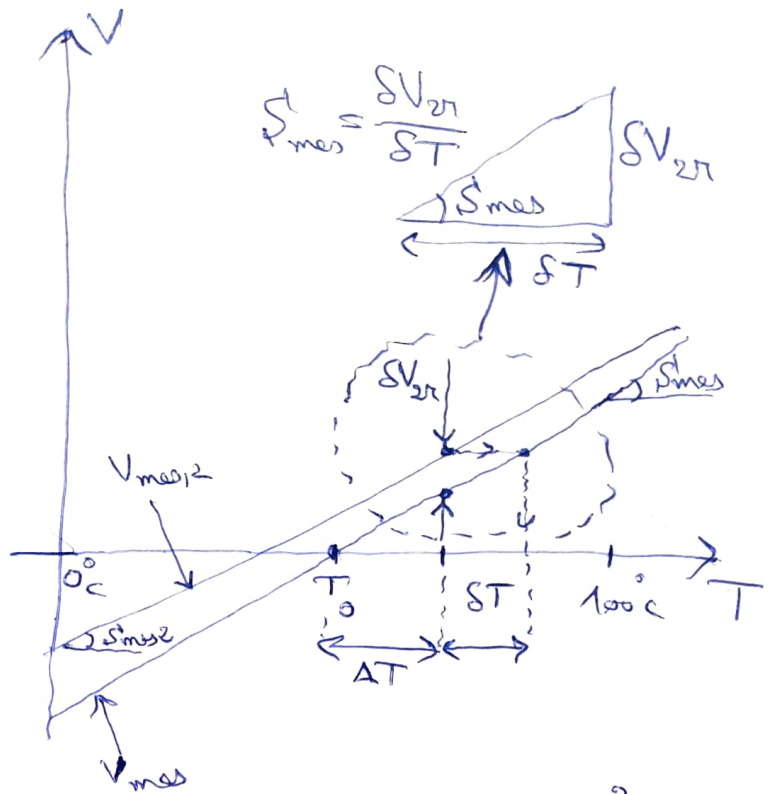 V
S_mes = δV_2r / δT
δV_2r
S_mes
δT
δV_2r
S_mes
V_mes,2
0°C
T_0
δT
100°C
T
S_mes2
ΔT
V_mes